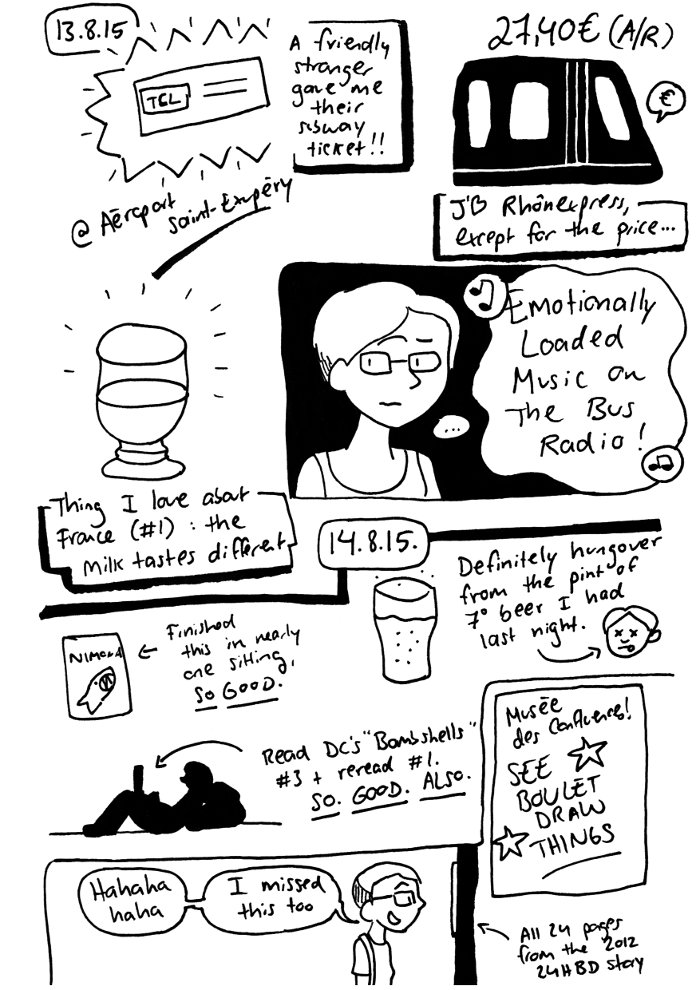 13.8.15
TCL
A friendly
stranger
gave me
their
subway
ticket!!
27,40€ (A/R)
€
@ Aéroport
Saint-Exupéry
J'❤ Rhônexpress,
except for the price...
Emotionally
Loaded
Music on
The Bus
Radio!
...
Thing I love about
France (#1) : the
milk tastes different
14.8.15.
Definitely hungover
from the pint of
7° beer I had
last night.
NIMONA
← Finished
this in nearly
one sitting,
SO GOOD.
Read DC's "Bombshells"
#3 + reread #1.
SO. GOOD. ALSO.
Musée
des Confluences!
SEE
BOULET
DRAW
THINGS
Hahaha
haha
I missed
this too
All 24 pages
from the 2012
24HBD story